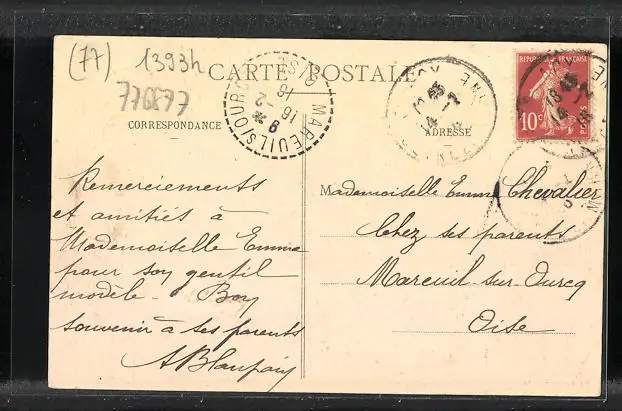 (77) 1393h
77GF77
CARTE POSTALE
CORRESPONDANCE
ADRESSE
RÉPUBLIQUE FRANÇAISE
10c
POSTES
MAREUIL S/OURCQ
OISE
16
Remerciements
et amitiés à
Mademoiselle Emma
pour soy gentil
modèle - Boy
souvenir à ses parents
ABlaupaiy
Mademoiselle Emma Chevalier
Chez ses parents
Mareuil-sur-Ourcq
Oise